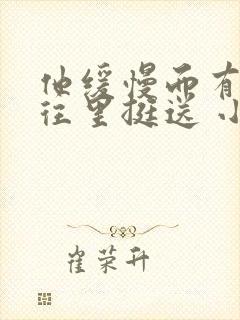 他缓慢而有
往里挺送 小
崔荣升